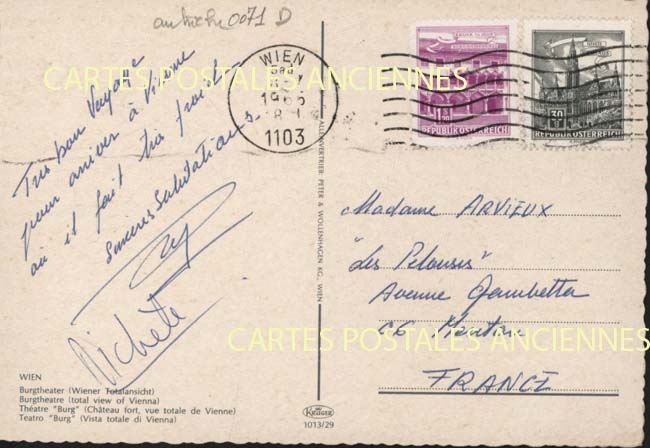 autriche 0071 D
WIEN
1966
1103
REPUBLIK ÖSTERREICH
30
REPUBLIK ÖSTERREICH
CARTES POSTALES ANCIENNES
Très bon Voyage
pour arriver à Vienne
où il fait très frais
Sincères Salutations
Michèle
ALLEINVERTRIEB: PETER & WOLLENHAGEN KG., WIEN
Madame ARVIEUX
"Les Pelouses"
Avenue Gambetta
06 Menton
FRANCE
CARTES POSTALES ANCIENNES
WIEN
Burgtheater (Wiener Totalansicht)
Burgtheatre (total view of Vienna)
Théatre "Burg" (Château fort, vue totale de Vienne)
Teatro "Burg" (Vista totale di Vienna)
Krüger
1013/29